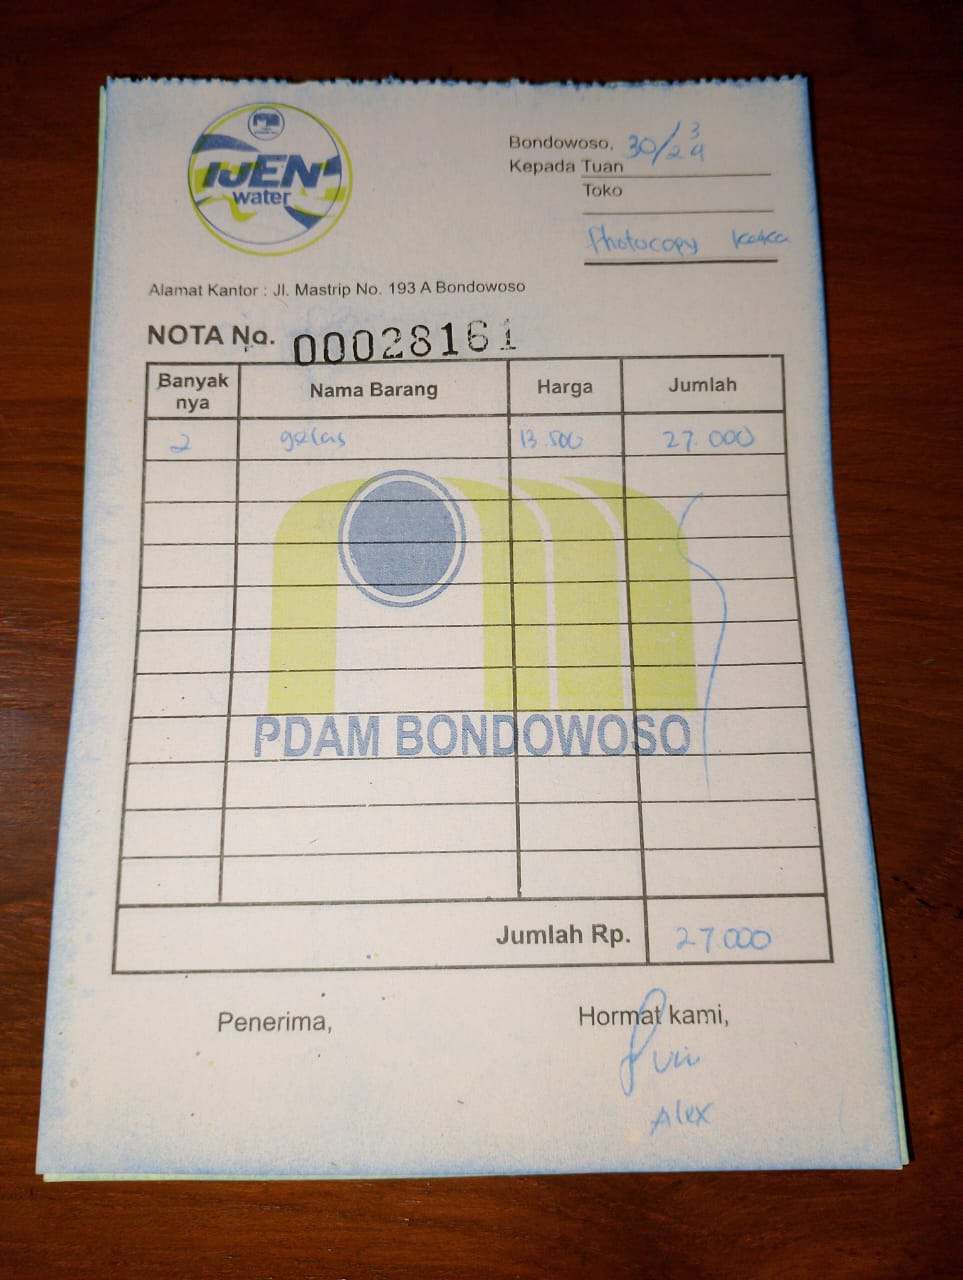 IJEN
water
Bondowoso, 30/3 24
Kepada Tuan
Toko
Photocopy
Alamat Kantor : Jl. Mastrip No. 193 A Bondowoso
NOTA No. 00028161
Banyak nya Nama Barang Harga Jumlah
2 gelas 13.500 27.000
PDAM BONDOWOSO
Jumlah Rp. 27.000
Penerima, Hormat kami,
Alex